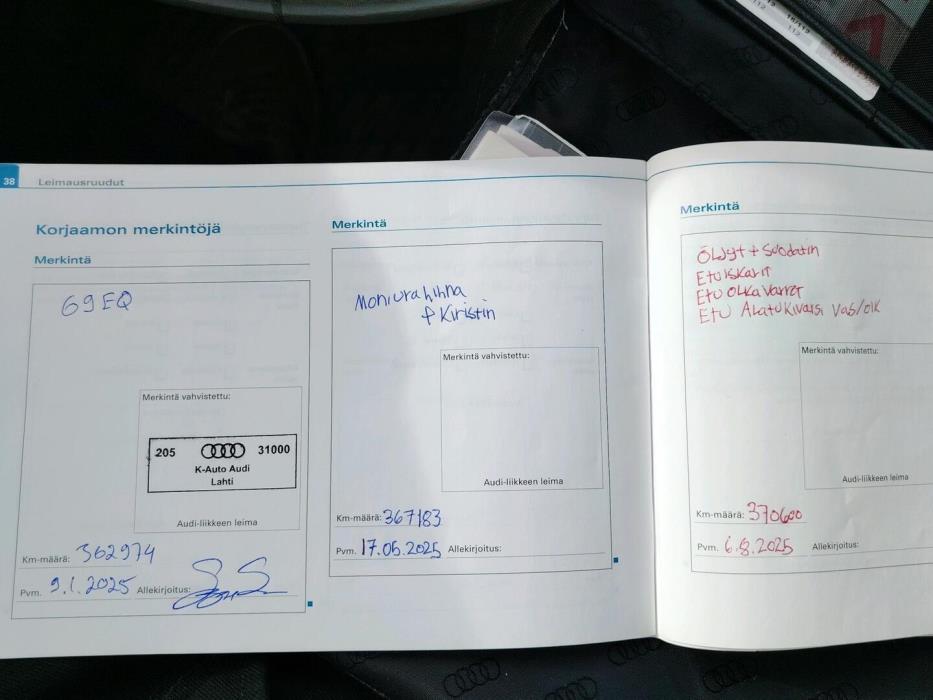 38 Leimausruudut
Korjaamon merkintöjä
Merkintä
69EQ
Merkintä vahvistettu:
205 31000
K-Auto Audi
Lahti
Audi-liikkeen leima
Km-määrä: 362974
Pvm. 9.1.2025 Allekirjoitus:
Merkintä
Moniurahihna
+ Kiristin
Merkintä vahvistettu:
Audi-liikkeen leima
Km-määrä: 367183
Pvm. 17.05.2025 Allekirjoitus:
Merkintä
Öljyt + Suodatin
Etu Iskarit
Etu Olkavarret
Etu Alatukivarsi vas/oik
Merkintä vahvistettu:
Audi-liikkeen leima
Km-määrä: 370600
Pvm. 6.8.2025 Allekirjoitus: